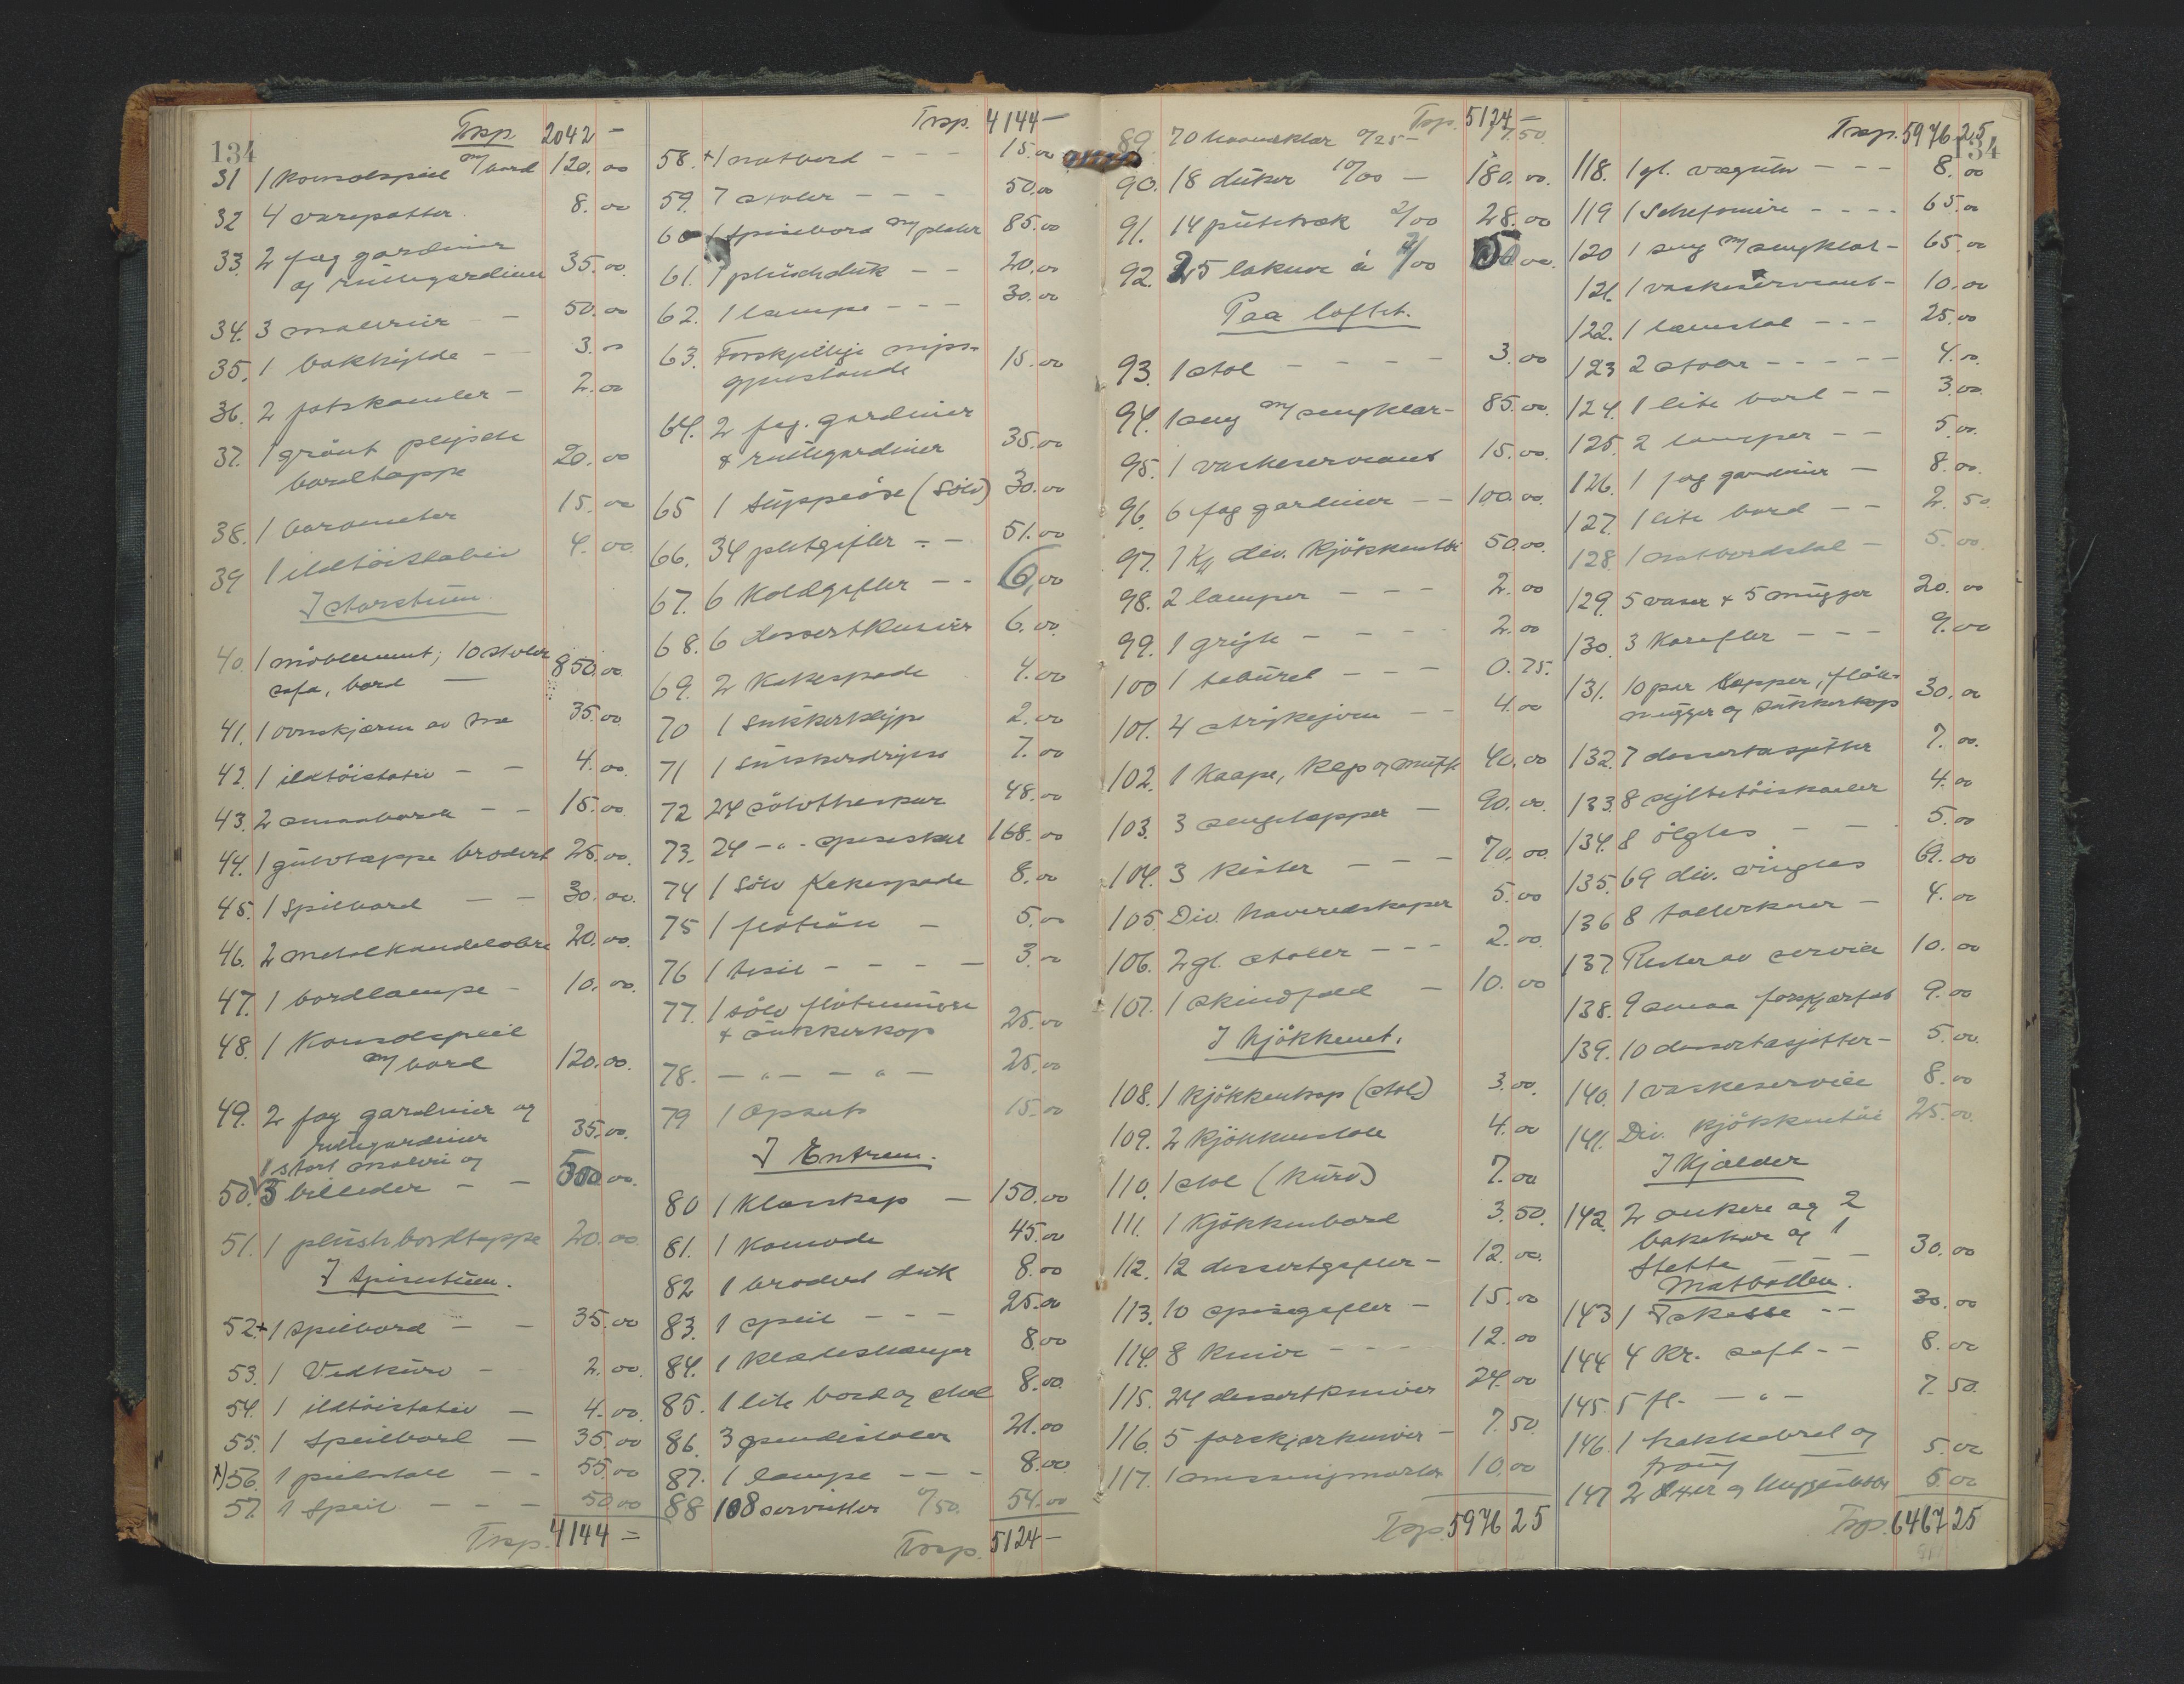 134
Trsp. 2042 -
31 1 Konsolspeil m/bord 120.00
32 4 varepotter. 8.00
33. 2 fag gardiner
og rullegardiner 35.00.
34. 3 malerier - 50.00
35. 1 bokhylde - 3.00
36. 2 fotskamler - 2.00
37. 1 grönt plysch
bordtæppe 20.00
38. 1 barometer 15.00
39 1 ildtöistativ 4.00.
I storstuen.
40. 1 möblement; 10 stoler
sofa, bord - 850.00.
41. 1 ovnskjærm av tre 35.00.
42. 1 ildtöistativ - - 4.00.
43. 2 smaaborde - - 15.00.
44. 1 gulvtæppe brodert 25.00.
45. 1 Spilbord - - 30.00.
46. 2 metalkandelabre 20.00.
47. 1 bordlampe - 10.00.
48. 1 Konsolspeil
m/bord 120.00.
49. 2 fag gardiner og
rullegardiner 35.00.
1 stort maleri og
50. 5 billeder - - 500.00.
51. 1 plüsh bordtæppe 20.00.
I Spisestuen.
52.+ 1 spilbord - - 35.00
53. 1 Vedkurv - 2.00.
54. 1 ildtöistativ - 4.00.
55. 1 Speilbord - 35.00
+)56. 1 pidestall - - 55.00
57. 1 Speil - - - 50.00
Trsp. 4144 =
Trsp. 4144 -
58. + 1 matbord - - - 15.00
59. 7 stoler - - - 50.00
60 1 spisebord m/plater 85.00
61. 1 plüschduk - - 20.00
62. 1 lampe - - - 30.00
63. Forskjellige nips-
gjenstande 15.00
64. 2 fag. gardiner
& rullegardiner 35.00
65 1 Suppeöse (Sölv) 30.00
66. 34 pletgafler - - 51.00
67. 6 Koldgafler - - 6,00
68. 6 dessertkniver 6.00.
69. 2 Kakespade 4.00
70 1 sukkerklype 2.00
71 1 sukkerdrysse 7.00
72 24 sölvtheskeer 48.00
73. 24 -"- spiseskeer 168.00
74 1 Sölv Kakespade 8.00
75 1 flötián - 5.00
76 1 tesil - - - - 3.00
77. 1 sölv flötemugge
& sukkerkop 25.00
78. - " - - " - 25.00
79 1 Opsats 15.00
I Entreen.
80 1 Klæskap - 150.00
81. 1 Komode 45.00
82 1 brodert duk 8.00
83. 1 speil - - - 25.00
84. 1 klæteshænger 8.00
85. 1 lite bord og stol 8.00
86. 3 gjendistoler 21.00
87. 1 lampe - - - 8.00
88 108 servietter 0/50. 54.00
Trsp. 5124 -
Trsp. 5124 -
89. 70 haandklær 0/25 - 17.50.
90. 18 duker 10/00 - 180.00.
91. 14 putetræk 2/00 28.00
92. 25 lakner à 2/00 50.00.
Paa loftet.
93. 1 stol - - - - 3.00
94. 1 seng m/sengklær - 85.00.
95. 1 vaskeservant 15.00.
96. 6 fag gardiner - - 100.00.
97. 1 Kj. div. Kjökkentöi 50.00.
98. 2 lamper - - - 2.00
99. 1 gryte - - - - 2.00
100 1 taburet - - - 0.75.
101. 4 strykejern - - 4.00
102. 1 Kaape, Kep og muffe 40.00
103. 3 sengetæpper - 90.00.
104. 3 kister - - - 70.00.
105. Div. haveredskaper 5.00
106. 2 gl. stoler - - - 2.00.
107. 1 skindfeld - 10.00
I Kjökkenet.
108. 1 Kjökkenskap (stol) 3.00.
109. 2 Kjökkenstole 4.00
110. 1 stol (Kurv) 7.00
111. 1 Kjökkenbord 3.50.
112. 12 dessertgafler - 12.00.
113. 10 spisegafler - 15.00
114. 8 Kniver - - - 12.00
115. 24 dessertkniver 24.00
116. 5 forskjærkniver - 7.50.
117. 1 messingmorter 10.00
Trsp. 5976 25
134
Trsp. 5976.25
118. 1 gl. vægur - - - 8.00
119 1 Schefoniere - - - - 65.00
120 1 seng m/sengklær - 65.00
121. 1 vaskeservant - 10.00
122. 1 lænestol - - - 25.00
123 2 stoler - - - - - 4.00.
124. 1 lite bord - - 3.00.
125. 2 lamper - - 5.00.
126. 1 fag gardiner - 8.00.
127. 1 lite bord - - 2.50.
128. 1 matbordstol - 5.00.
129. 5 vaser & 5 mugger 20.00
130. 3 Karafler - - - 9.00
131. 10 par Kopper, flöte-
mugger og sukkerkop 30.00
132. 7 dessertasjetter 7.00.
133. 8 syltetöiskaaler 4.00
134. 8 ölglas - - 5.00
135. 69 div. vinglas 69.00
136 8 tallerkener - 4.00
137. Rester av service 10.00
138. 9 smaa forskjærfat 9.00
139. 10 dessertasjetter - 5.00.
140. 1 vaskeservice 8.00
141. Div. Kjökkentöi 25.00.
I Kjælder
142. 2 ankere og 2
bakekar og 1
Stette - - 30.00
Matbollen.
143 1 Iskasse - - 30.00
144 4 Kr. saft - - 8.00
145. 5 fl. - " - 7.50.
146. 1 hakkebret og
traug 5.00
147 2 Øxer og 5.00
Trsp. 6467 25